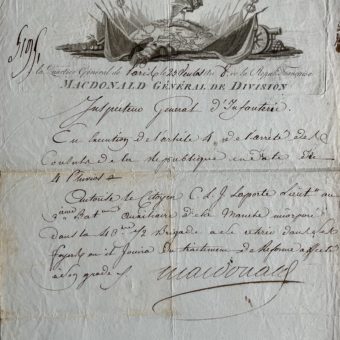 au Quartier Général de Paris le 28 an 8 de la Répub. Française
MACDONALD GÉNÉRAL DE DIVISION
Inspecteur Général d'Infanterie.
En exécution de l'article 4 de l'arrêté des
Consuls de la République en date du
4 Pluviôse
Autorise le Citoyen C. d. J. Laporte Lieut. au
Bat. Auxiliaire de la Manche incorporé
dans la 40 1/2 Brigade a se retirer dans ses
Foyers ou il Jouira du traitement de Réforme affecté
à son grade
Macdonald